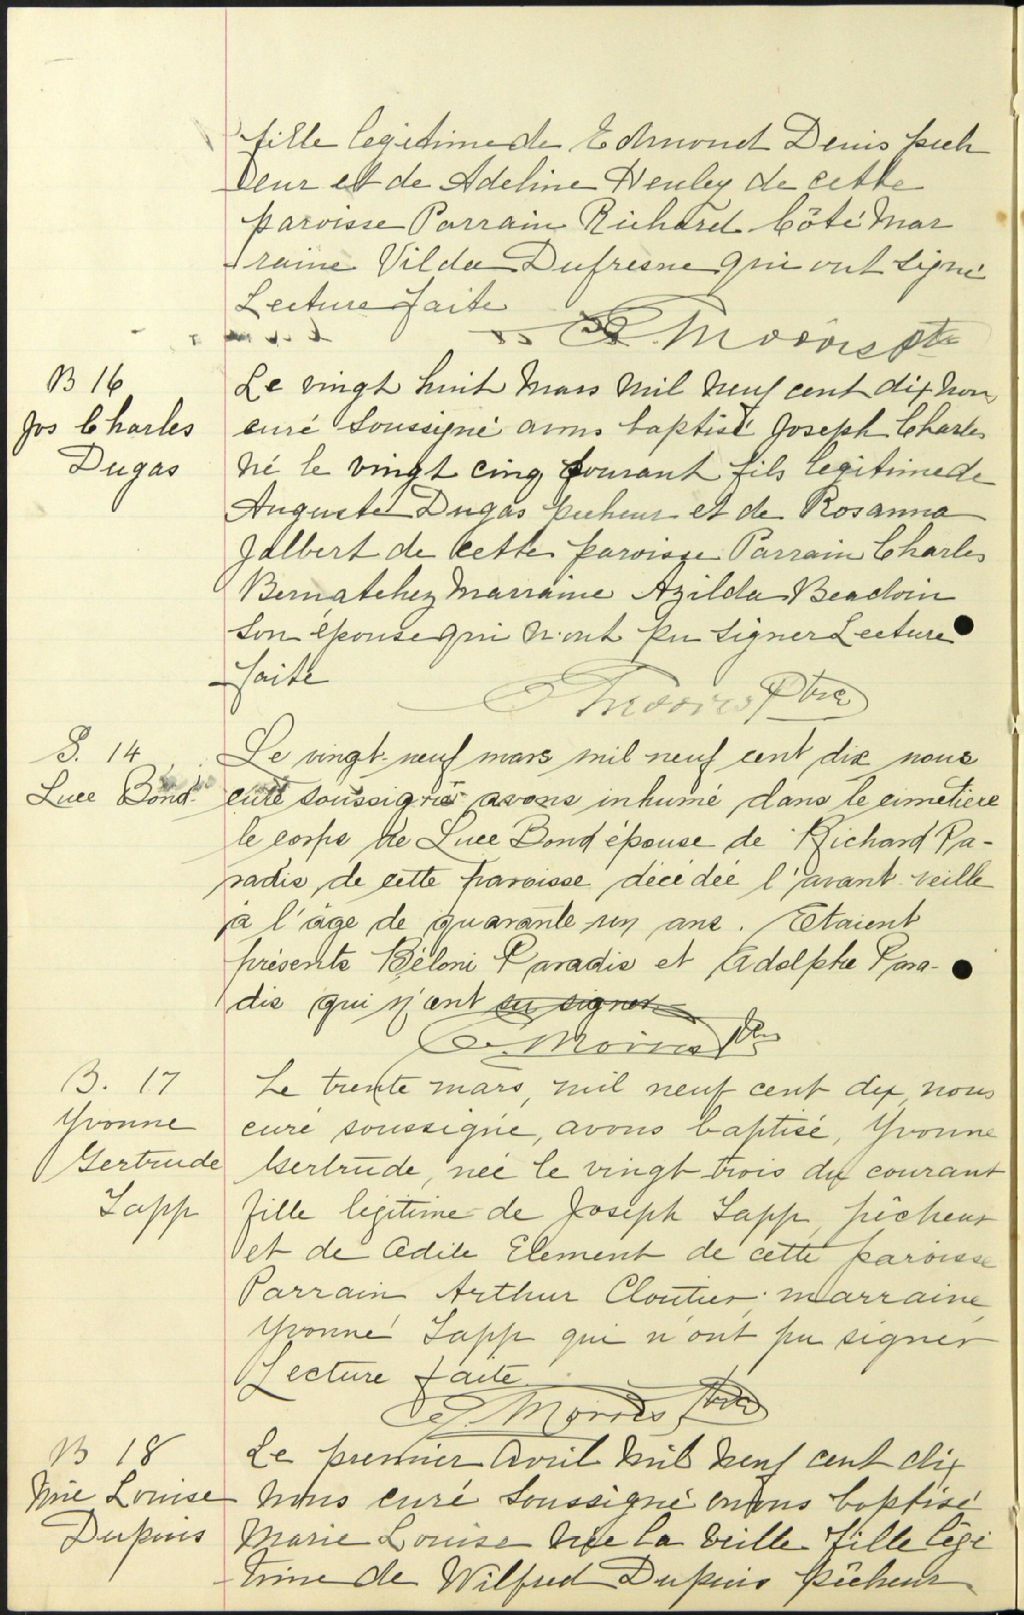 fille legitime de Edmond Denis pech
eur et de Adeline Henley de cette
paroisse Parrain Richard Côté Mar
raine Vilda Dufresne qui ont signé
Lecture faite
E. Morris Ptre
B 16
Jos Charles
Dugas
Le vingt huit Mars Mil Neuf cent dix Nous
curé Soussigné avons baptisé Joseph Charles
Né le vingt cinq courant fils legitime de
Auguste Dugas pecheur et de Rosanna
Jalbert de cette paroisse Parrain Charles
Bernatchez Marraine Azilda Beadoin
Son épouse qui n'ont pu signer Lecture
faite
E Morris Ptre
S. 14
Luce Bond
Le vingt-neuf mars mil neuf cent dix nous
curé soussigné avons inhumé dans le cimetière
le corps de Luce Bond épouse de Richard Pa-
radis, de cette paroisse décédée l'avant veille
à l'âge de quarante un ans. Etaient
présents Béloni Paradis et Adolphe Para-
dis qui n'ont su signer
E. Morris Ptre
B. 17
Yvonne
Gertrude
Lapp
Le trente mars, mil neuf cent dix, nous
curé soussigné, avons baptisé, Yvonne
Gertrude, née le vingt-trois du courant
fille légitime de Joseph Lapp, pêcheur
et de Adile Element de cette paroisse
Parrain Arthur Cloutier, marraine
Yvonne Lapp qui n'ont pu signer
Lecture faite.
E. Morris Ptre
B 18
Mrie Louise
Dupuis
Le premier Avril Mil Neuf cent dix
Nous curé Soussigné avons baptisé
Marie Louise Née la veille fille légi
time de Wilfred Dupuis pêcheur